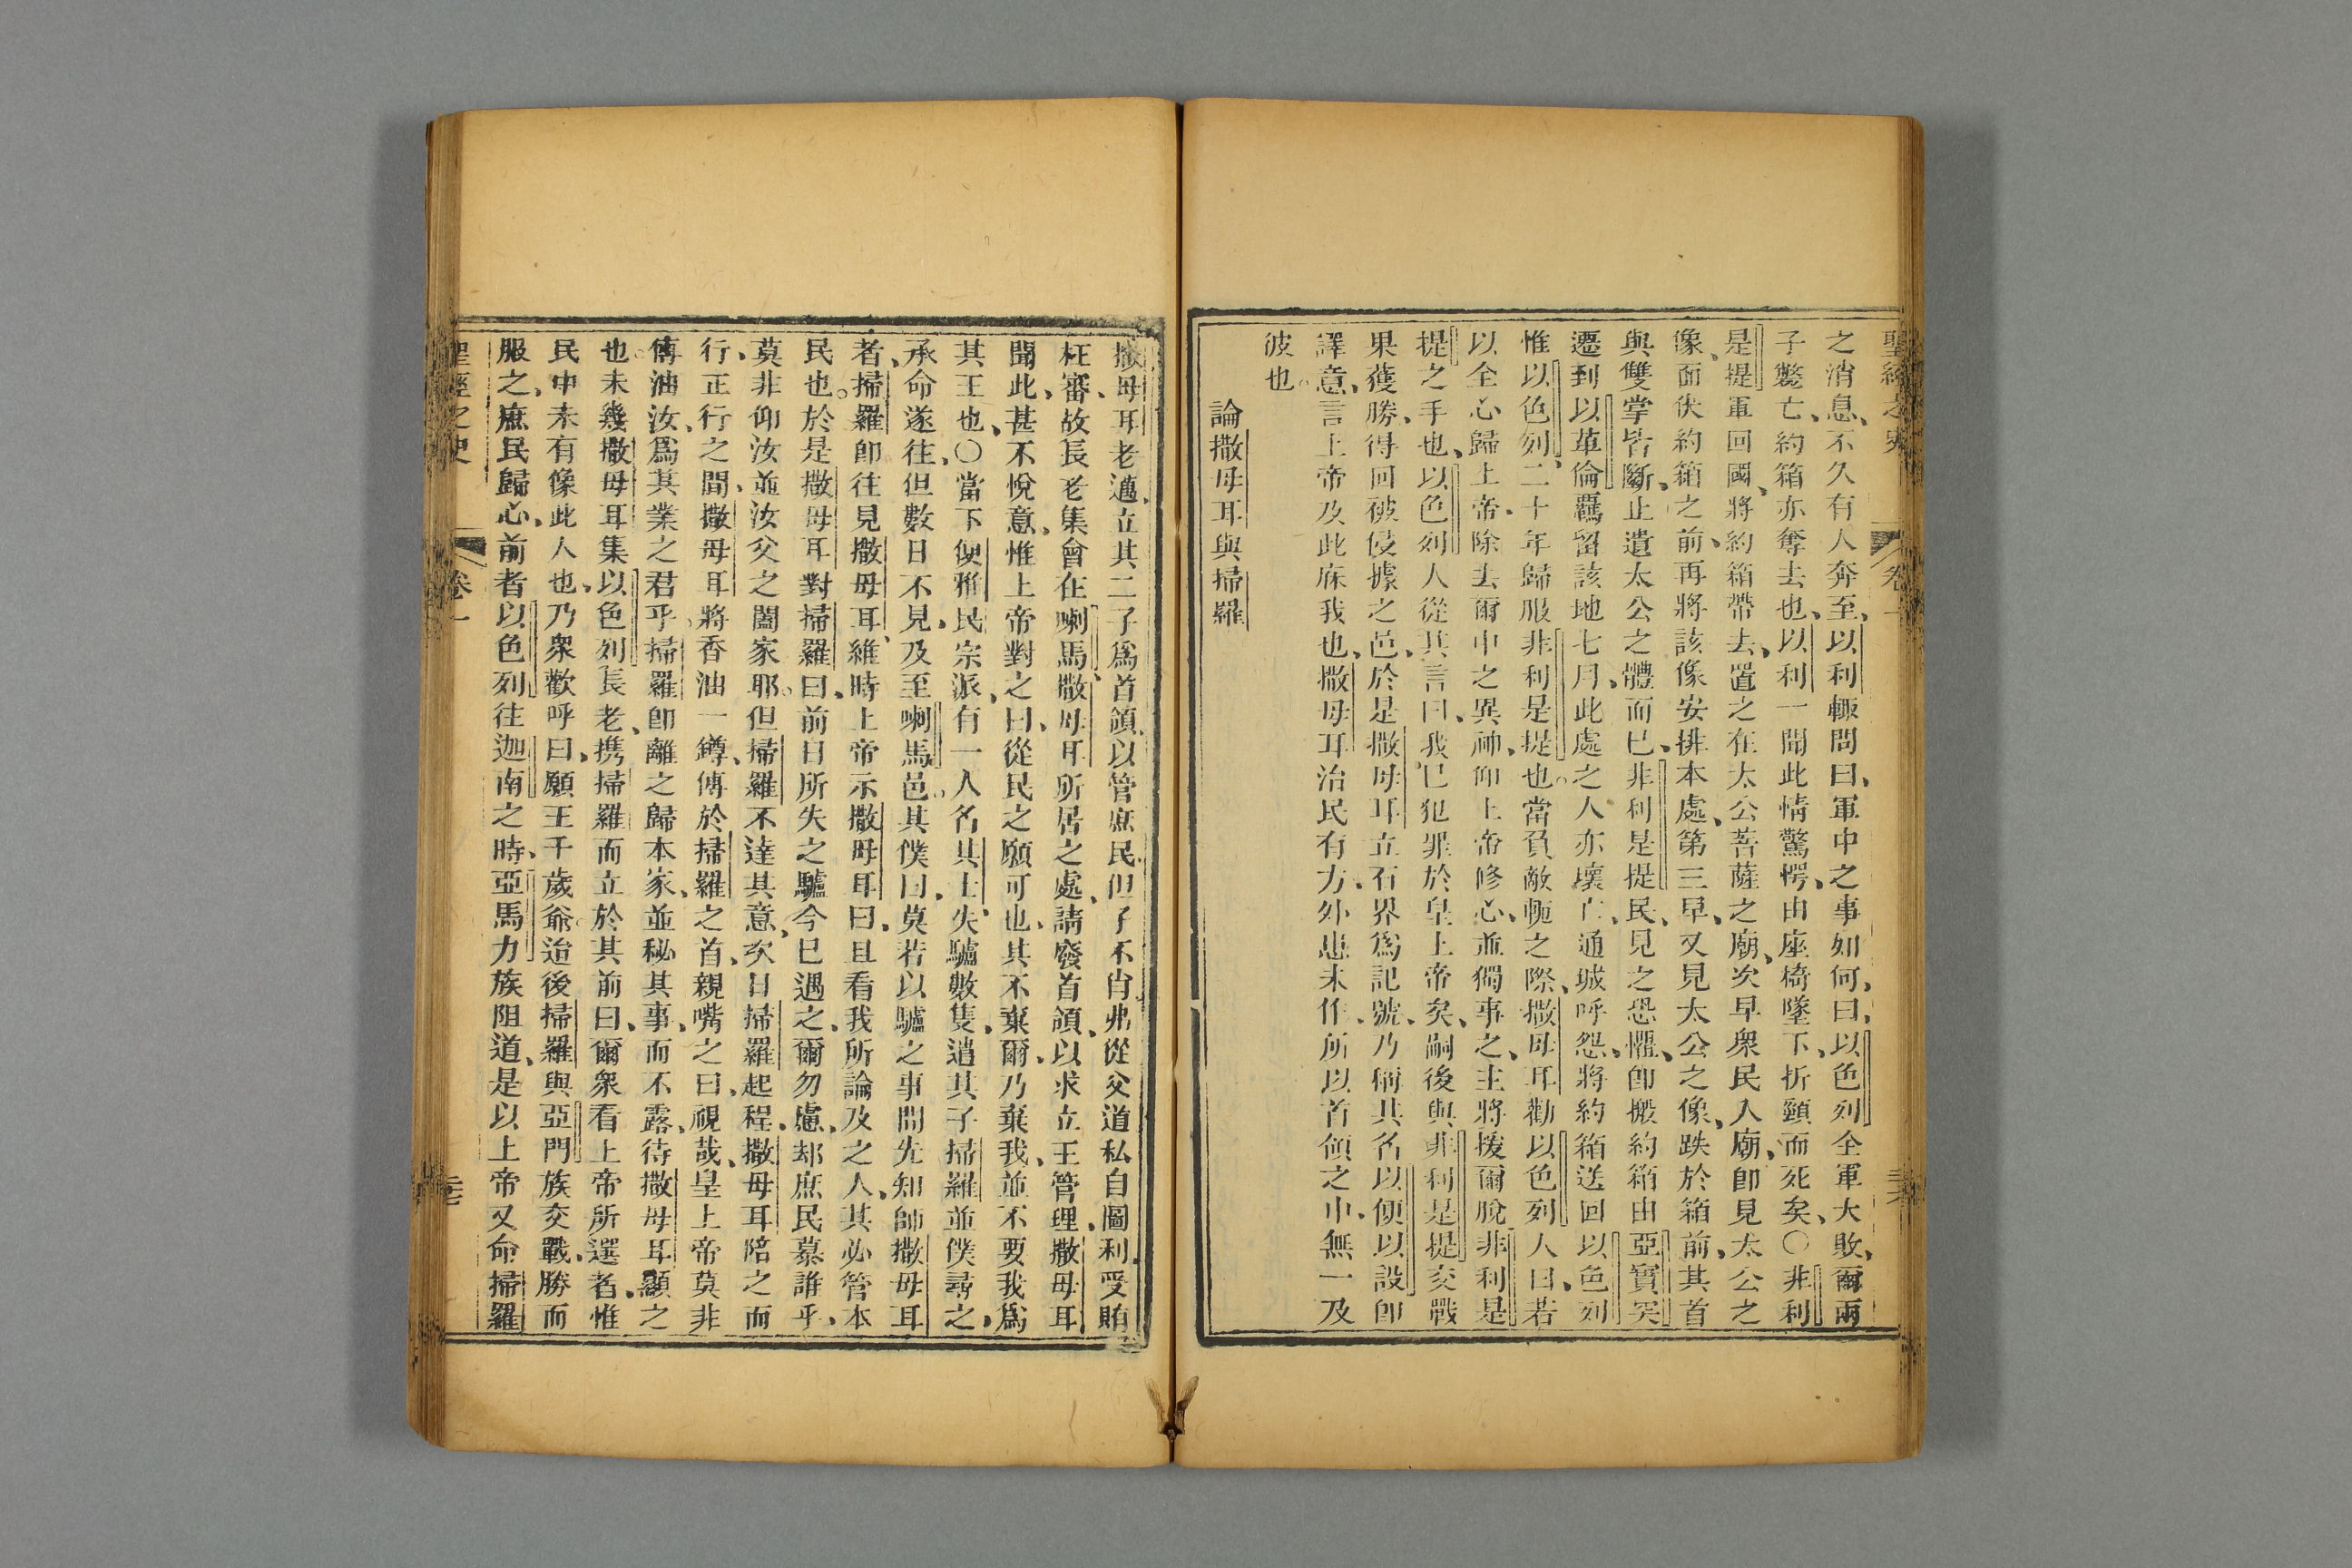 聖經之史 卷一
之消息、不久有人奔至、以利輙問曰、軍中之事如何、曰、以色列全軍大敗、爾兩
子斃亡、約箱亦奪去也、以利一聞此情驚愕、由座椅墜下、折頸而死矣、〇非利
是提軍回國、將約箱帶去、置之在太公菩薩之廟、次早衆民入廟、卽見太公之
像、面伏約箱之前、再將該像安排本處、第三早、又見太公之像、跌於箱前、其首
與雙掌皆斷、止遺太公之體而已、非利是提民、見之恐懼、卽搬約箱由亞實突
遷到以革倫、羈留該地七月、此處之人亦壞亡、通城呼怨、將約箱送回以色列
惟以色列、二十年歸服非利是提也。當負敵軛之際、撒母耳勸以色列人曰、若
以全心歸上帝、除去爾中之異神、仰上帝修心、並獨事之、主將援爾脫非利是
提之手也、以色列人從其言曰、我已犯罪於皇上帝矣、嗣後與非利是提交戰
果獲勝、得回被侵據之邑、於是撒母耳立石界爲記號、乃稱其名以便以設卽
譯意、言上帝及此庥我也、撒母耳治民有方、外患未作、所以首傾之中、無一及
彼也。
論撒母耳與掃羅
撒母耳老邁、立其二子爲首領、以管庶民、但子不肖、弗從父道私自圖利、受賄
枉審、故長老集會在喇馬、撒母耳所居之處、請廢首領、以求立王管理、撒母耳
聞此、甚不悅意、惟上帝對之曰、從民之願可也、其不棄爾、乃棄我、並不要我爲
其王也、〇當下便雅民宗派、有一人名其士、失驢數隻、遣其子掃羅並僕尋之、
承命遂往、但數日不見、及至喇馬邑。其僕曰、莫若以驢之事問先知師撒母耳
者、掃羅卽往見撒母耳、維時上帝示撒母耳曰、且看我所論及之人、其必管本
民也。於是撒母耳對掃羅曰、前日所失之驢今已遇之、爾勿慮、却庶民慕誰乎、
莫非仰汝並汝父之闔家耶。但掃羅不達其意、次日掃羅起程、撒母耳陪之而
行、正行之間、撒母耳將香油一罇、傅於掃羅之首、親嘴之曰、視哉、皇上帝莫非
傅油汝、爲其業之君乎。掃羅卽離之歸本家、並秘其事、而不露、待撒母耳顯之
也。未幾撒母耳集以色列長老、携掃羅而立於其前曰、爾衆看上帝所選者、惟
民中未有像此人也、乃衆歡呼曰、願王千歲爺。迨後掃羅與亞門族交戰、勝而
服之、庶民歸心、前者以色列往迦南之時、亞馬力族阻道、是以上帝又命掃羅
聖經之史 卷一